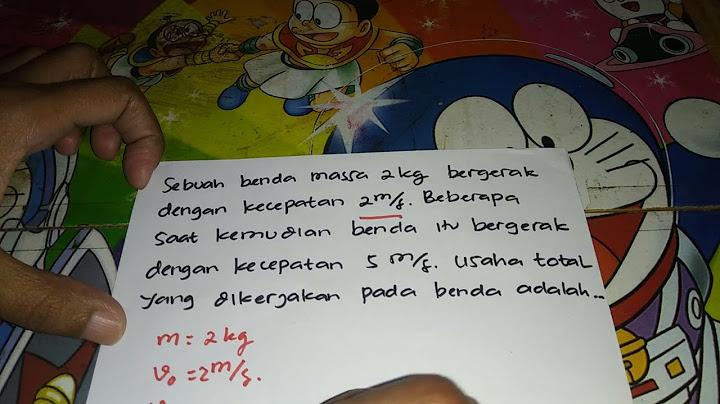 Sebuah benda massa 2kg bergerak
dengan kecepatan 2m/s. Beberapa
saat kemudian benda itu bergerak
dengan kecepatan 5 m/s. Usaha total
yang dikerjakan pada benda adalah...
m = 2 kg
v₀ = 2m/s.